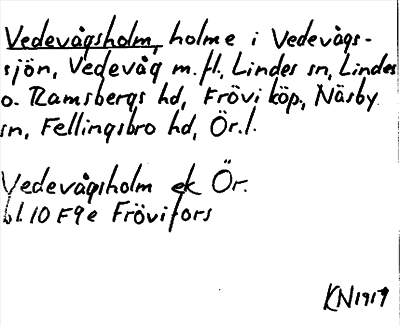 Vedevågsholm, holme i Vedevågs-
sjön, Vedevåg m.fl., Lindes sn, Lindes
o. Ramsbergs hd, Frövi köp, Näsby
sn, Fellingsbro hd, Ör.l.
Vedevågsholm ek Ör.
bl. 10 F9e Frövifors
KN1919